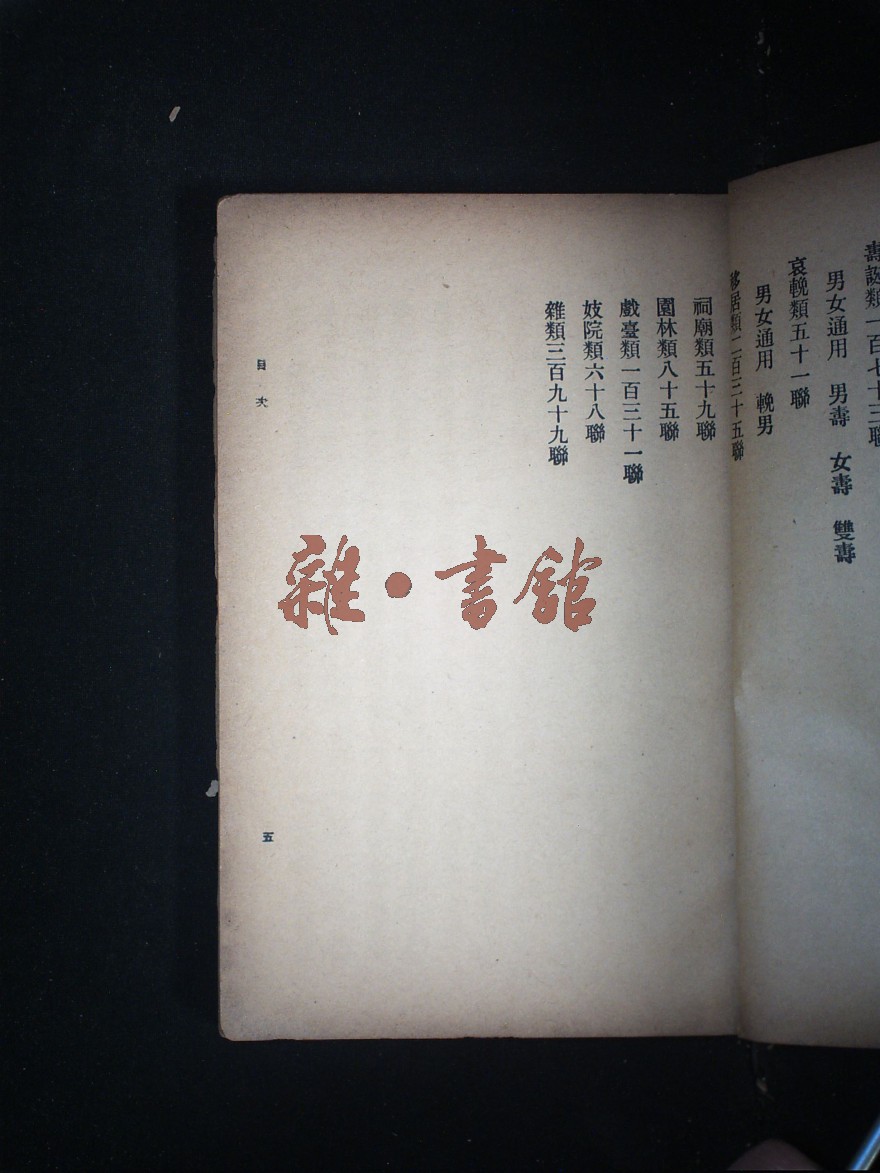 壽誕類一百七十三聯
男女通用　男壽　女壽　雙壽
哀輓類五十一聯
男女通用　輓男
移居類二百三十五聯
祠廟類五十九聯
園林類八十五聯
戲臺類一百三十一聯
妓院類六十八聯
雜類三百九十九聯
目次
五
雜·書館